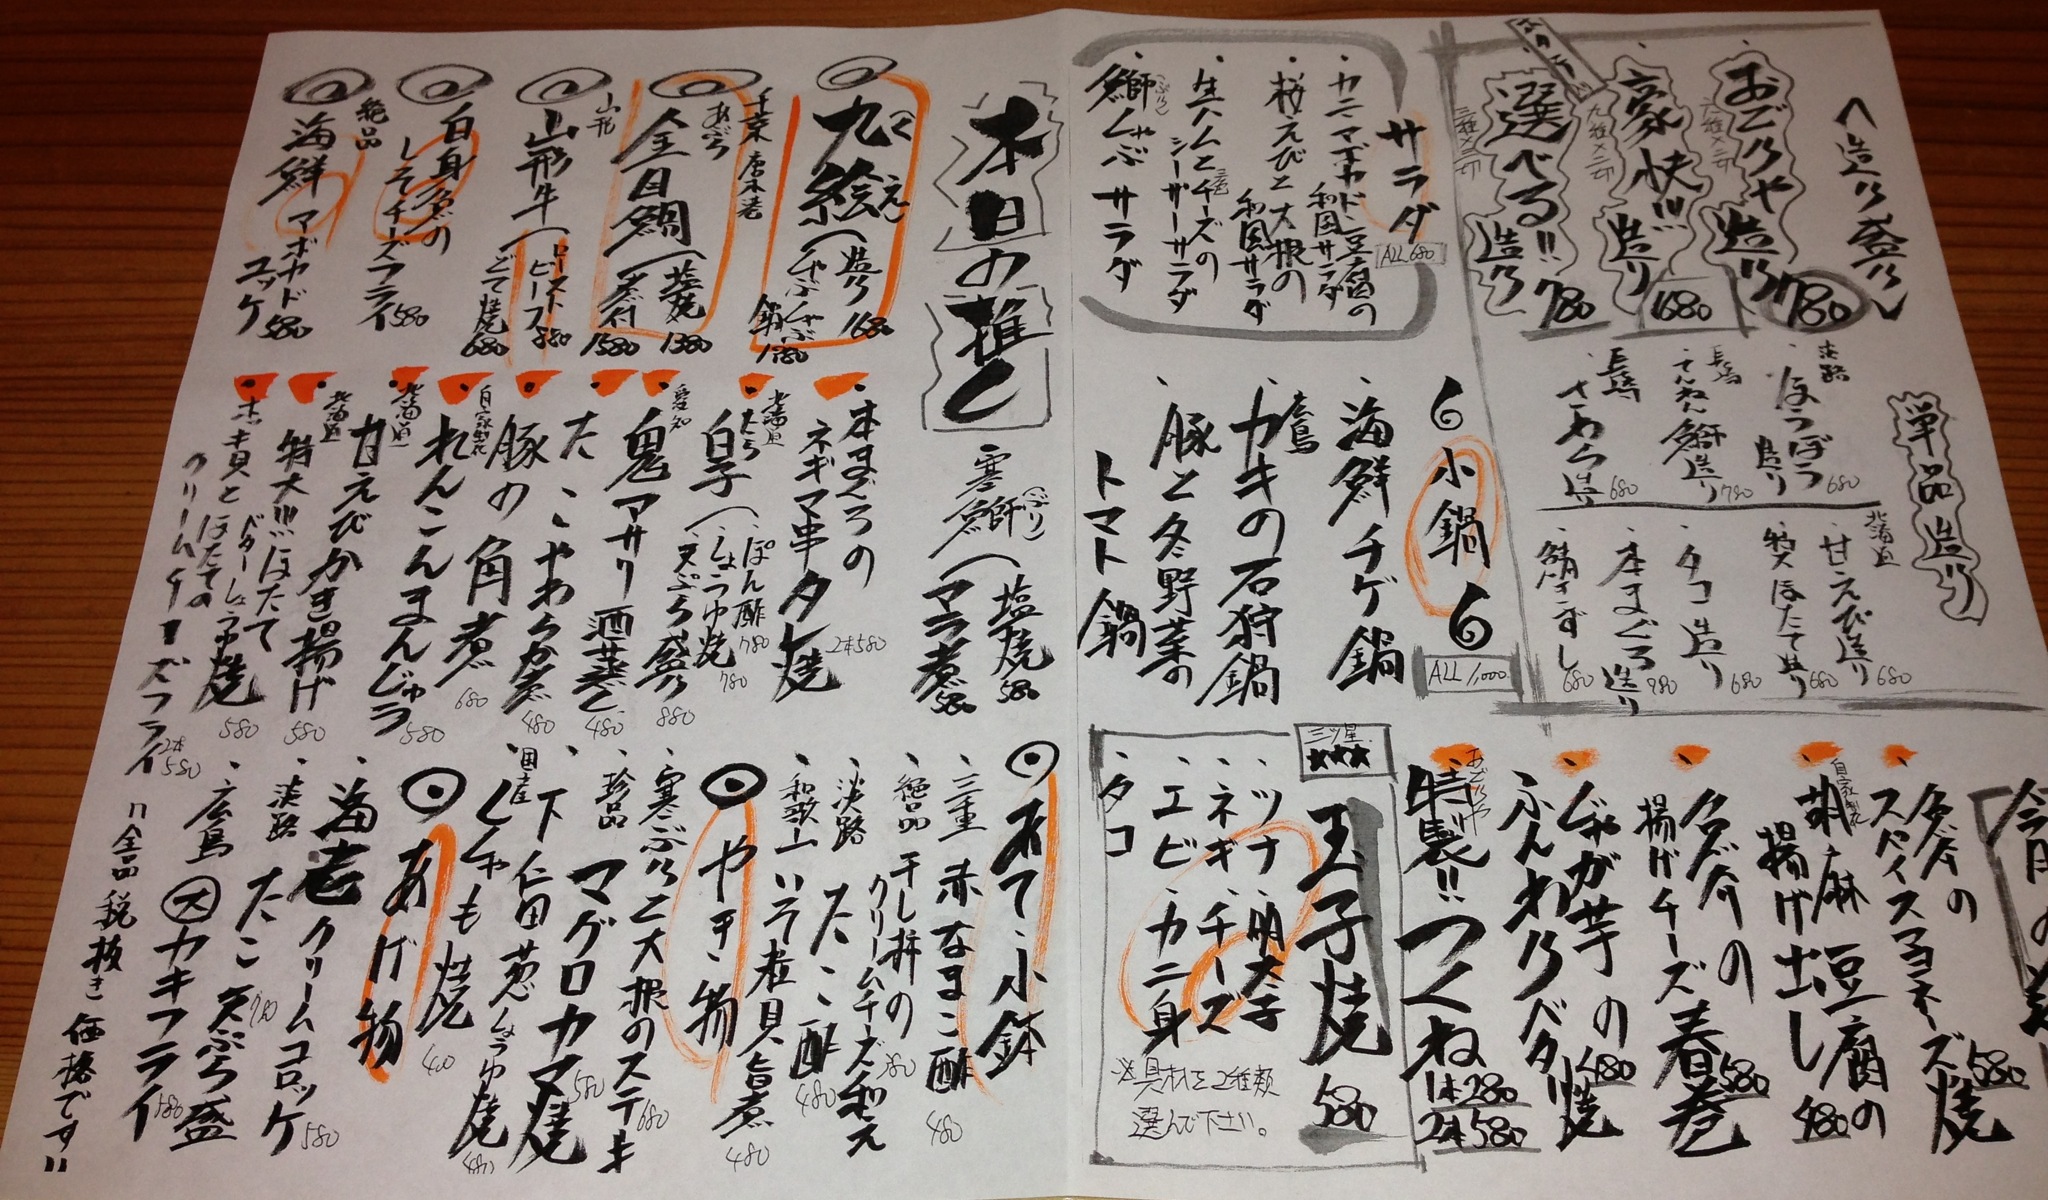 造り盛り
おごりや造り
780
六種×二切
豪快!!!造り
1680
九種×二切
選べる!!造り
780
三種×三切
単品造り
淡路
ほうぼう造り 680
長崎
てんねん鰤造り 780
長崎
さわら造り 680
北海道
甘えび造り 680
特大ほたて造り 680
タコ造り 680
本まぐろ造り 980
鯖きずし 680
サラダ
ALL 680
カニマヨカドと豆腐の
和風サラダ
桜えびと大根の
和風サラダ
生ハムとチーズの
シーザーサラダ
鰤しゃぶサラダ
小鍋
ALL 1,000
海鮮チゲ鍋
広島
カキの石狩鍋
豚と冬野菜の
トマト鍋
スパイスマヨネーズ焼 580
自家製
胡麻豆腐の
揚げ出し 480
揚げチーズ春巻 580
じゃが芋の
ふんわりバター焼 480
おごりや
特製!!つくね
1本 280
2本 580
三ツ星
★★★
玉子焼
580
・ツナ・明太子
・ネギ・チーズ
・エビ・カニ身
・タコ
※具材を2種類
選んで下さい。
本日の推し
九絵
くえ
造り 1680
しゃぶしゃぶ鍋 1780
千葉
あぶら
金目鯛
塩焼 1380
煮付 1580
山形
山形牛
ローストビーフ 880
白身魚の
しそチーズフライ 580
絶品
海鮮
ユッケ 580
寒鰤(ぶり)
塩焼 580
アラ煮 580
本まぐろの
ネギマ串タレ焼
2本580
北海道
たら
白子
ぽん酢 780
しょうゆ焼 780
天ぷら盛り 880
愛知
鬼アサリ酒蒸し 480
たこやわらか煮 480
豚の角煮 680
自家製
れんこんまんじゅう 580
北海道
甘えびかき揚げ 580
北海道
特大!!!ほたて
バターしょうゆ焼 580
ホキ貝とほたての
クリームチーズフライ
2本580
あて小鉢
三重 赤なまこ酢 480
絶品 干し柿の
クリームチーズ和え 380
淡路 たこ酢 480
和歌山 いそ煮貝旨煮 480
やき物
寒ぶりと大根のステーキ 680
珍品 マグロカマ焼 580
下仁田葱しょうゆ焼 480
国産 ししゃも焼 400
あげ物
海老クリームコロッケ 580
淡路 たこ天ぷら盛 780
広島 大カキフライ 580
"全品税抜き価格です"